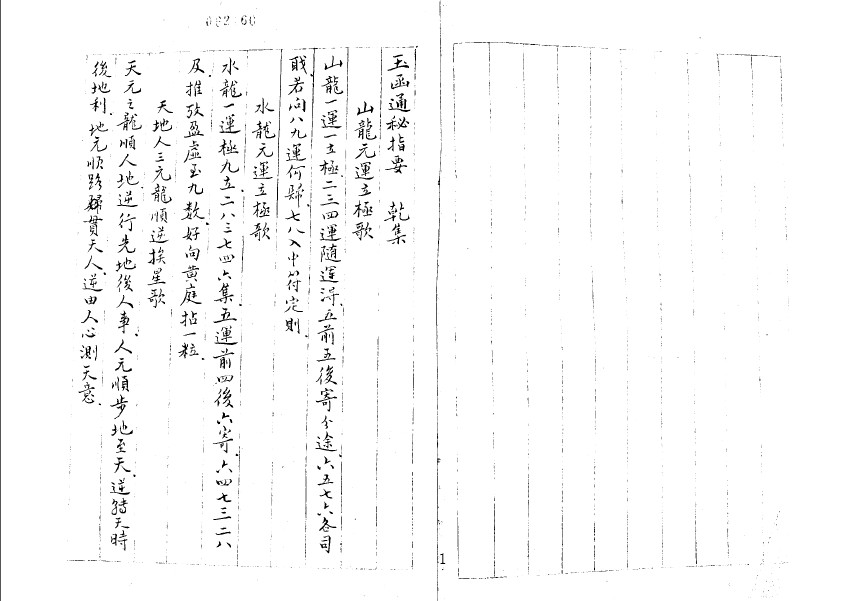 002 60
玉函通秘指要 乾集
山龍元運立極歌
山龍一運一立極二三四運隨運淂五前五後寄分途六五七六各司
戝若问八九運何歸七八入中符定則
水龍元運立極歌
水龍一運極九立二八三七四六集五運前四後六寄六四七三二八
及推攷盈虛玉九数好向黄庭拈一粒
天地人三元龍順逆挨星歌
天元之龍順人地逆行先地後人事人元順步地至天逆轉天時
後地利地元順路歸貫天人逆由人心測天意
1